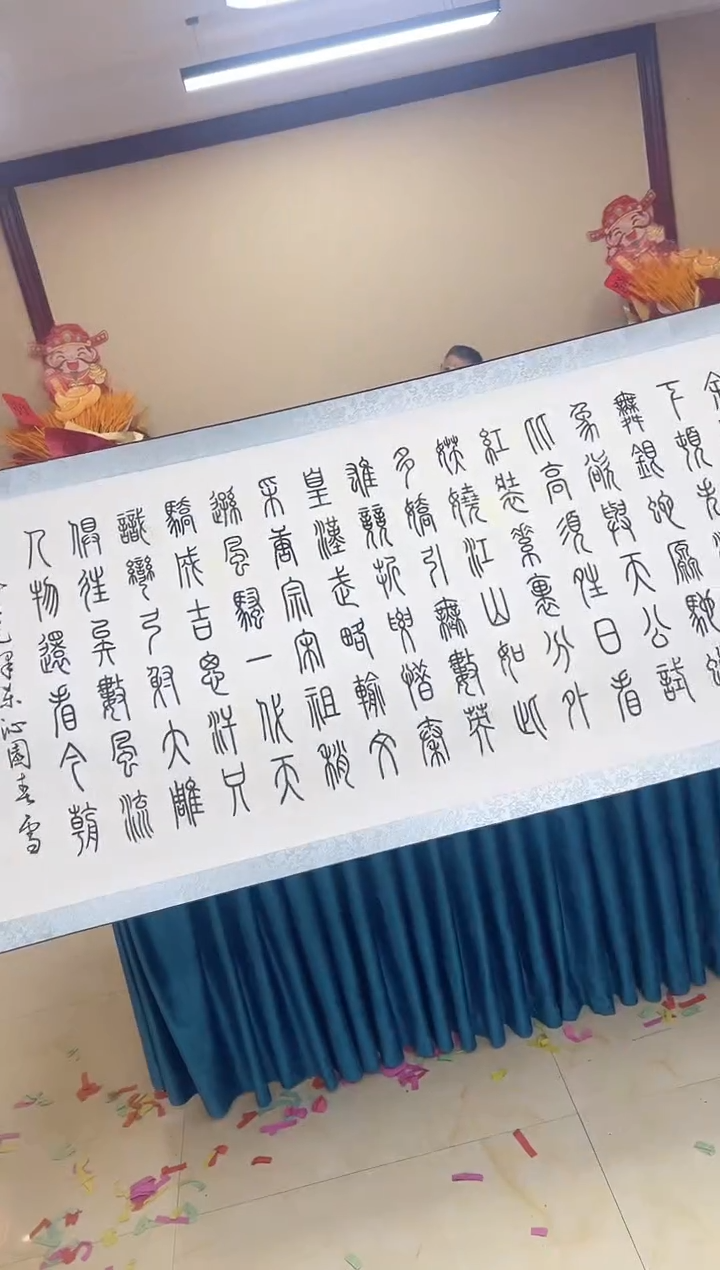 下頓失滔
舞銀蛇原馳蠟
象欲與天公試
比高須晴日看
紅裝素裹分外
妖嬈江山如此
多嬌引無數英
雄競折腰惜秦
皇漢武略輸文
采唐宗宋祖稍
遜風騷一代天
驕成吉思汗只
識彎弓射大雕
俱往矣數風流
人物還看今朝
毛澤东沁園春雪